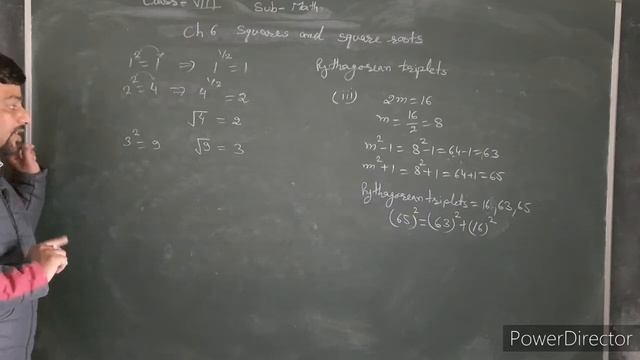 Class- VIII Sub- Math
Ch 6 Squares and square roots
1² = 1 ⇒ 1^1/2 = 1
2² = 4 ⇒ 4^1/2 = 2
√4 = 2
3² = 9 √9 = 3
Pythagorean triplets
(iii) 2m = 16
m = 16/2 = 8
m²-1 = 8²-1 = 64-1 = 63
m²+1 = 8²+1 = 64+1 = 65
Pythagorean triplets = 16, 63, 65
(65)² = (63)² + (16)²
PowerDirector